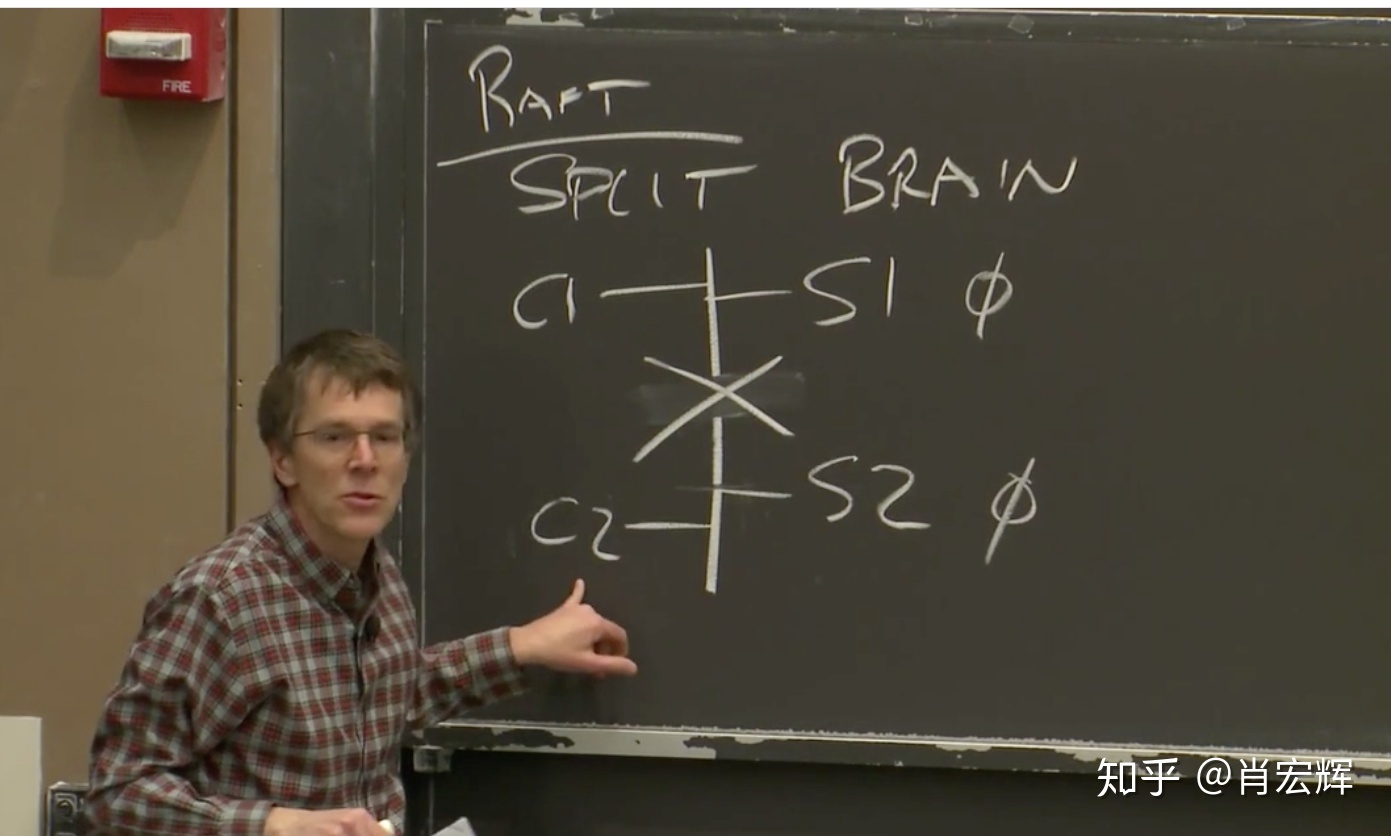 FIRE
RAFT
SPLIT BRAIN
C1 S1 ϕ
C2 S2 ϕ
知乎 @肖宏辉